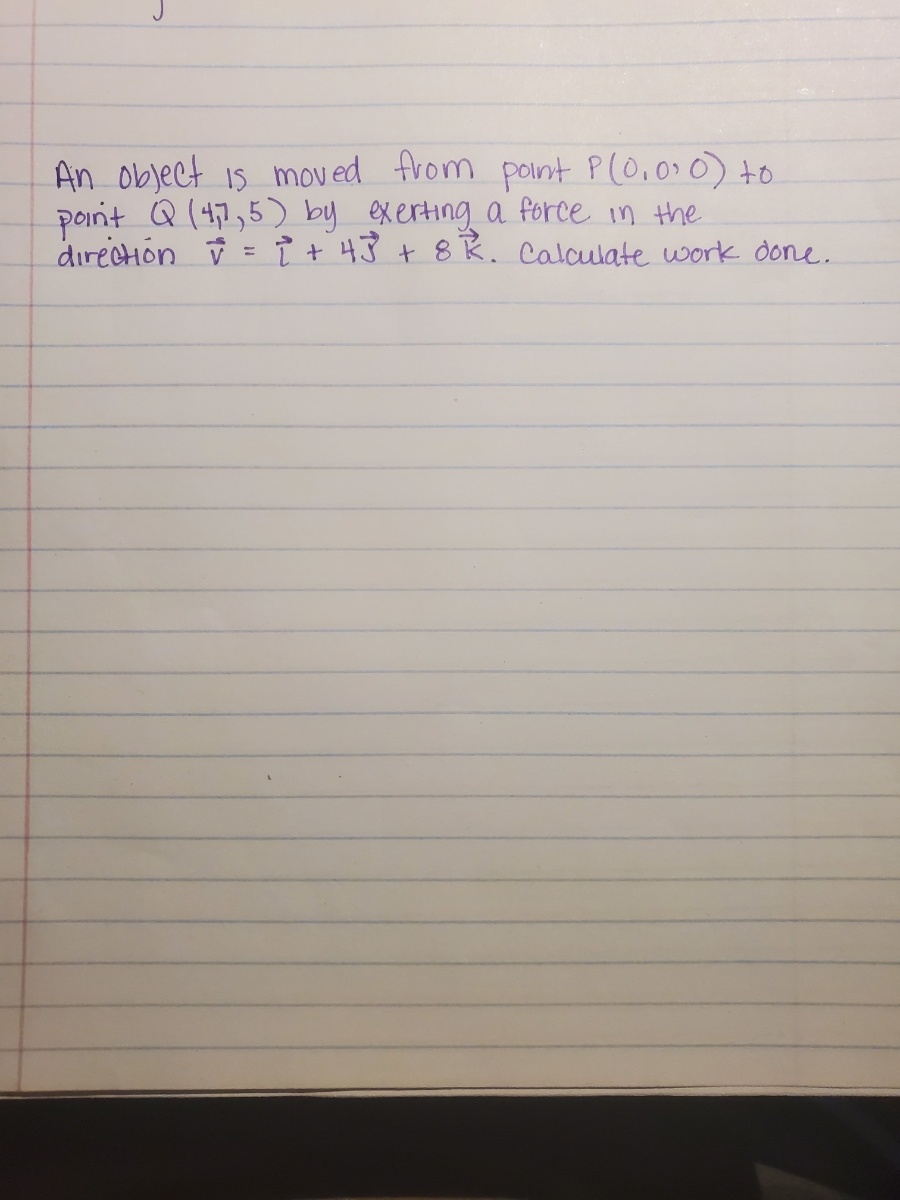 An object is moved from point P(0,0,0) to
point Q (4,7,5) by exerting a force in the
direction v⃗ = i⃗ + 4j⃗ + 8k⃗. Calculate work done.